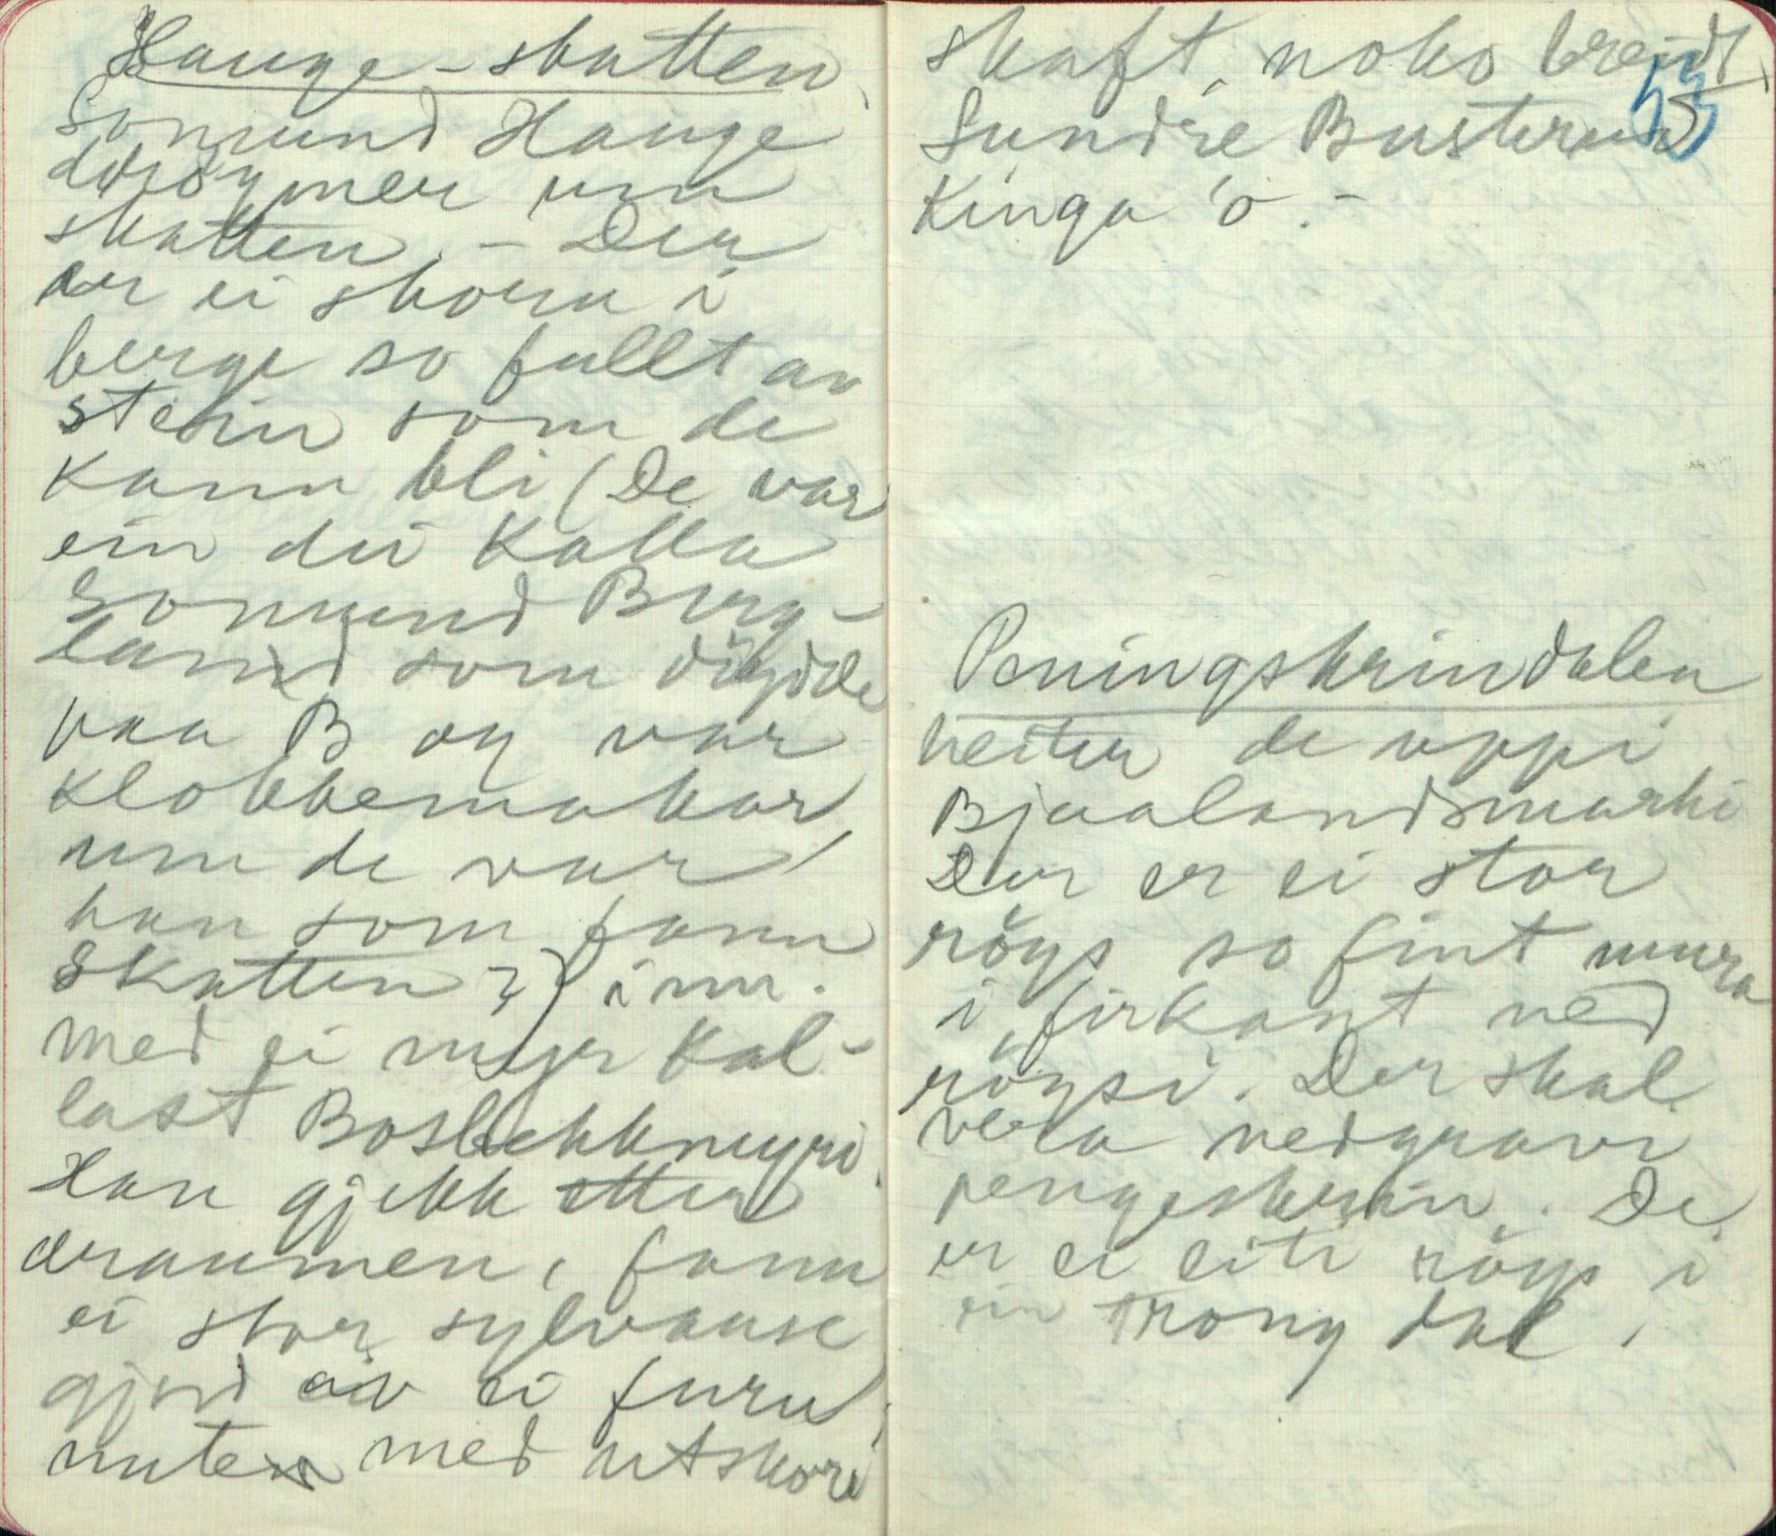 Hauge-skatten
Sonmund Hauge
drøymer um
skatten. - Der
er ei skora i
berge so fullt av
stein som de
kann bli (De var
ein dei kalla
Sonmund Berg-
land som döydde
paa B og var
klokkemakar,
um de var
han som fann
skatten?) i nu.
med ei myr kal-
last Boslekkmyri.
Han gjekk etter
draumen, fann
ei stor sylvause
gjord av ei furu
nute med utskore
skaft, noko breidt,
53
Sundre Busterud
Kinga o. -
Peningskrindalen
heiter de uppi
Bjaalandsmarki
Der er ei stor
röys so fint mura
i firkant ned
röysi. Der skal
vera nedgrave
pengeskrin. De
er ei liti röys i
ein trong dal.